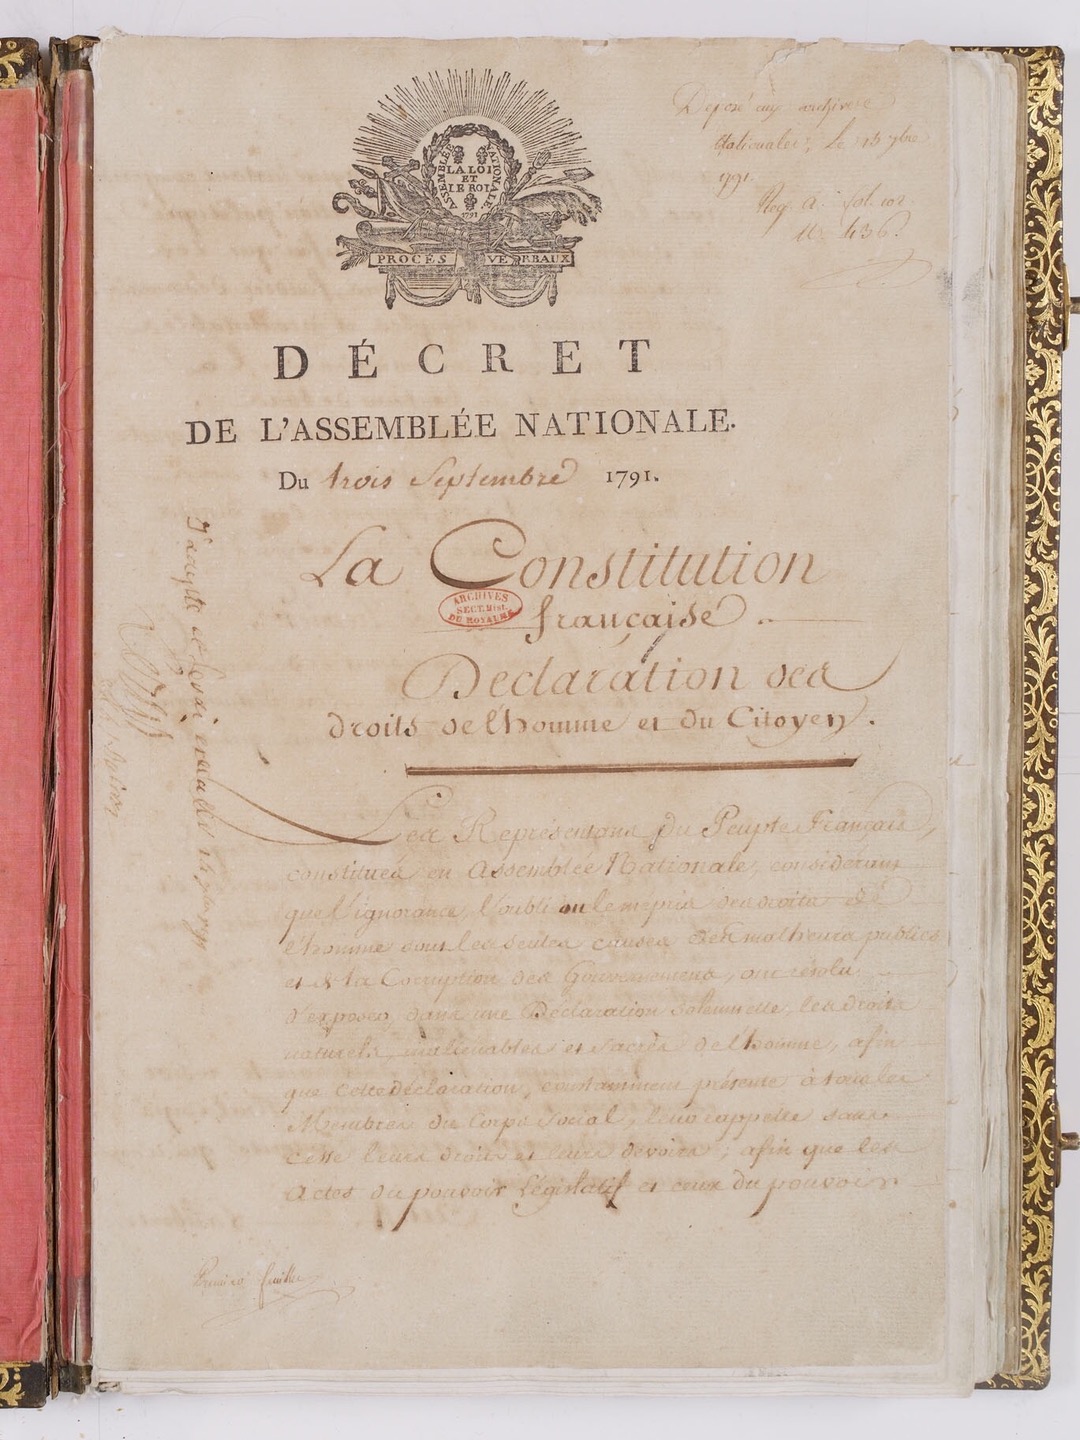 Déposé aux archives
Nationales, le 15 7bre
1791.
Reg. A. fol. 102
No 436.
ASSEMBLÉE NATIONALE
LA LOI
ET
LE ROI
1791
PROCÈS VERBAUX
DÉCRET
DE L'ASSEMBLÉE NATIONALE.
Du trois Septembre 1791.
La Constitution
française ..
ARCHIVES
SECT. HIST.
DU ROYAUME
Declaration des
droits de l'homme et du Citoyen.
Les Représentans du Peuple Français,
constitués en Assemblée Nationale, considérant
que l'ignorance, l'oubli ou le mépris des droits de
l'homme sont les seules causes des malheurs publics
et de la Corruption des Gouvernemens, ont résolu
d'exposer, dans une Déclaration solemnelle, les droits
naturels, inaliénables et sacrés de l'homme, afin
que cette déclaration, constamment présente à tous les
Membres du Corps social, leur rappelle sans
cesse leurs droits et leurs devoirs; afin que les
Actes du pouvoir Législatif et ceux du pouvoir
J'accepte et ferai exécuter 14 7bre 1791
Louis
Premiere feuille